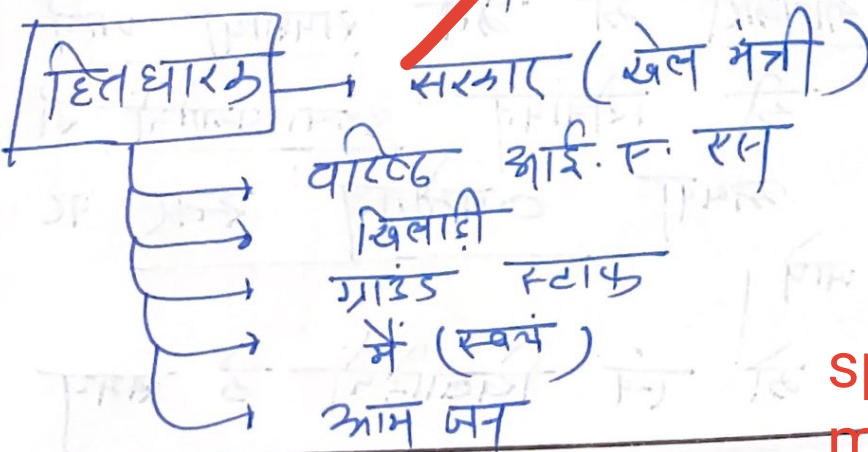 हितधारक → सरकार (खेल मंत्री)
वरिष्ठ आई. ए. एस
खिलाड़ी
ग्राउंड स्टाफ
मैं (स्वयं)
आम जन
sp
m